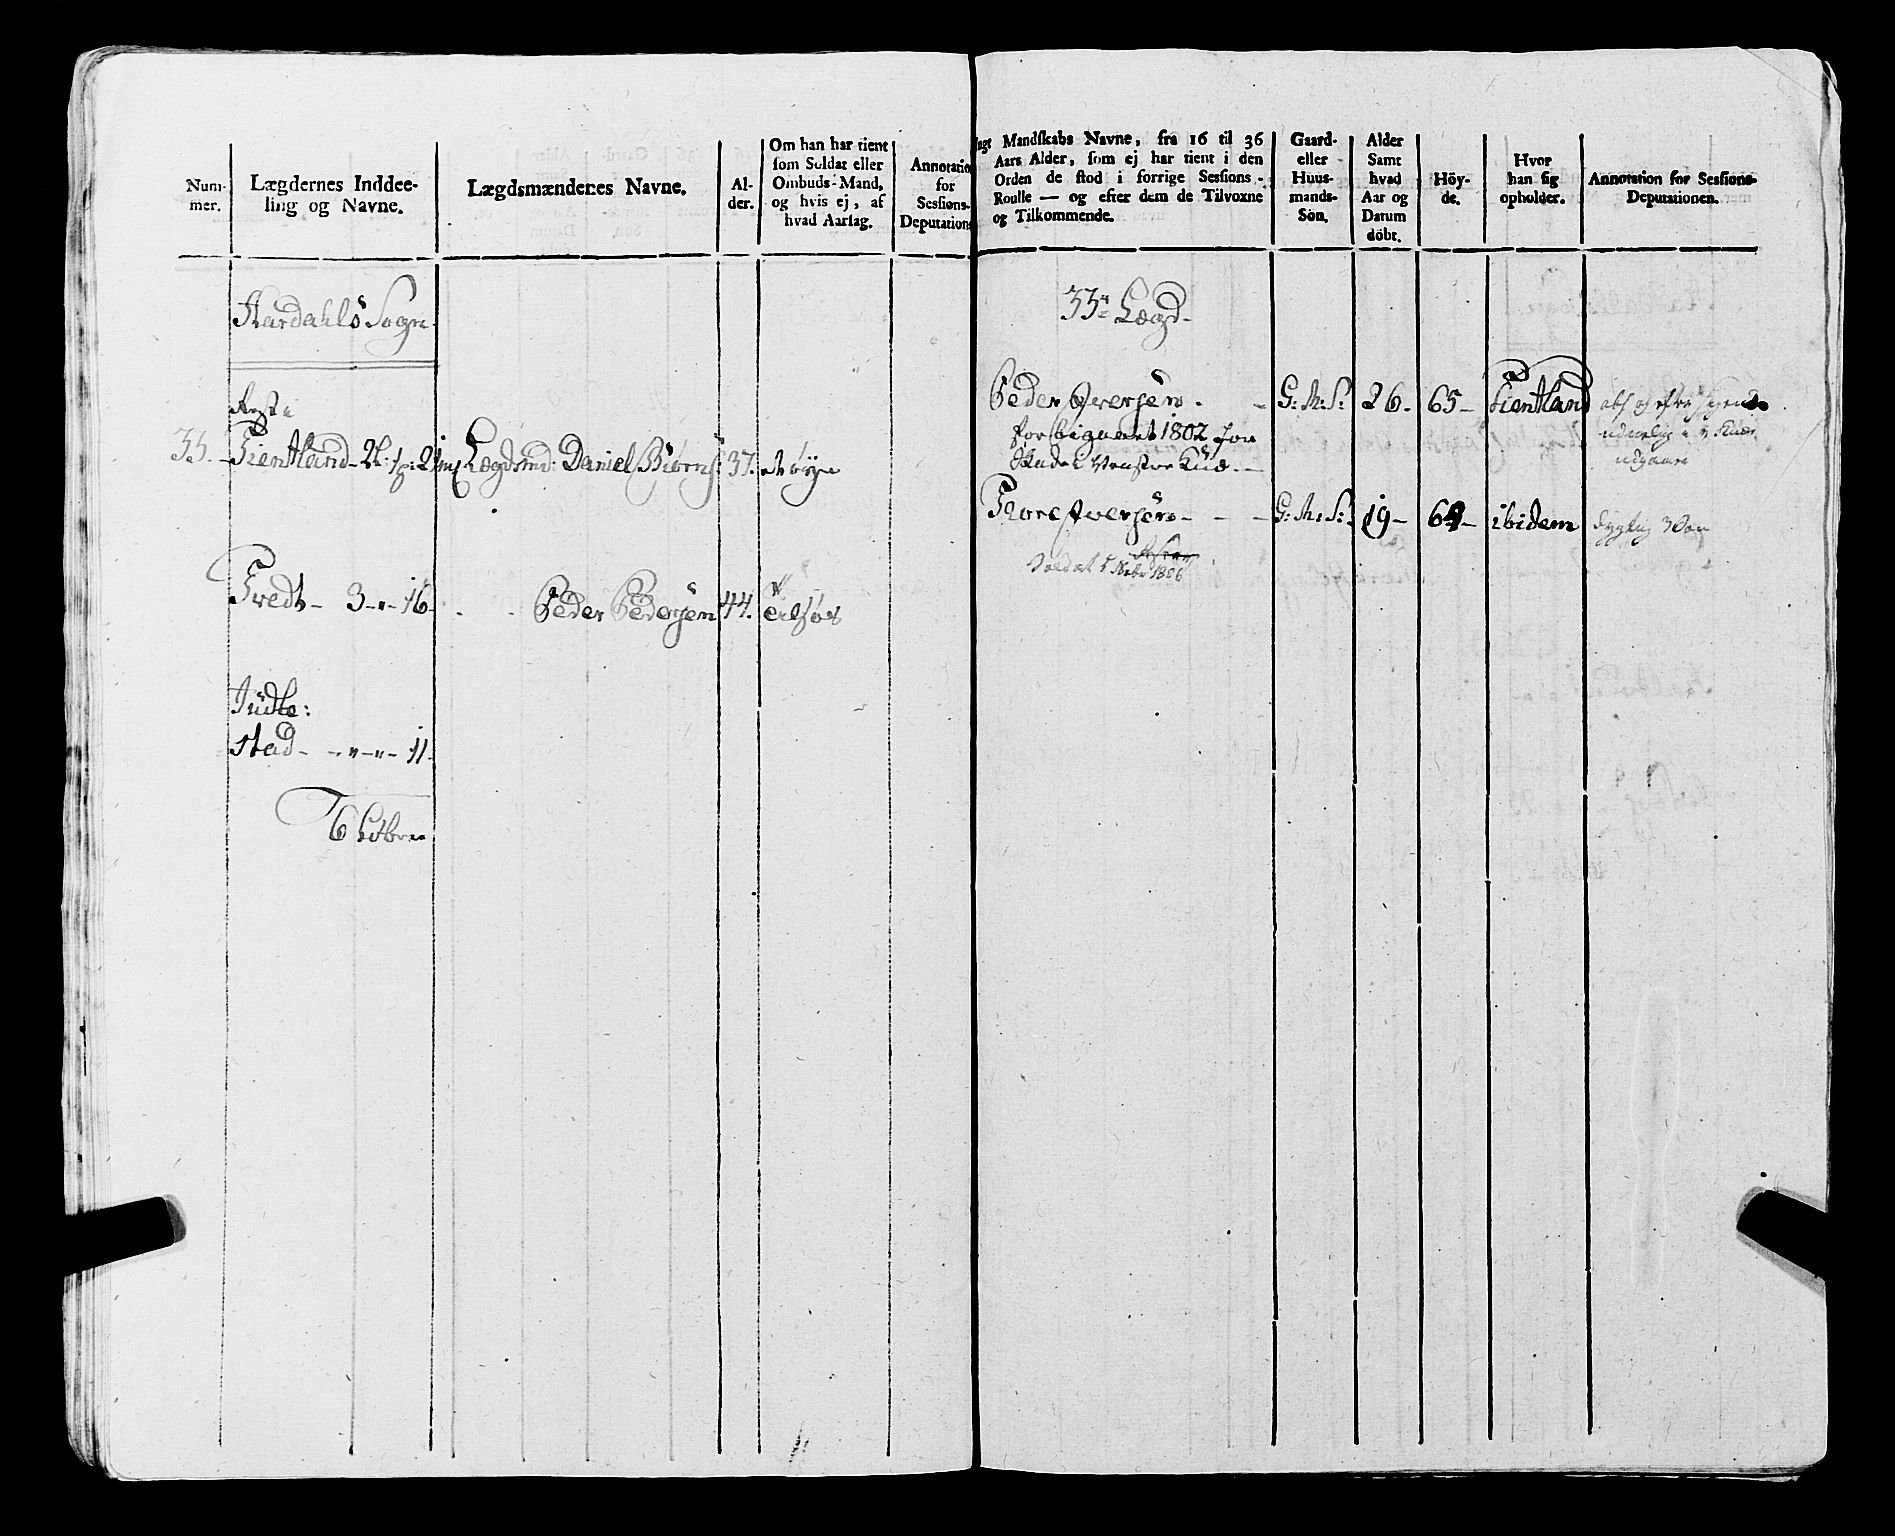 Num-
mer.
Lægdernes Inddee-
ling og Navne.
Lægdsmændenes Navne.
Al-
der.
Om han har tient
som Soldat eller
Ombuds-Mand,
og hvis ej, af
hvad Aarsag.
Annotation
for
Sessions-
Deputation
Hardahls Sogn.
33.
Fientland
Lægdsmd: Daniel Biørns: 37.
Tvedt - 3 - " - 16 - Peder Pedersen 44.
Judle:
stad - - " - " - 11.
6
lagt Mandskabs Navne, fra 16 til 36
Aars Alder, som ej har tient i den
Orden de stod i forrige Sessions-
Roulle — og efter dem de Tilvoxne
og Tilkommende.
Gaard-
eller
Huus-
mands-
Sön.
Alder
Samt
hvad
Aar og
Datum
döbt.
Höy-
de.
Hvor
han sig
opholder.
Annotation for Sessions-
Deputationen.
33te Lægd.
Peder Iversen. - G: M: S: 26. 65 - Fientland
forbigaaet 1802 for
Skade i Venstre Knæ. -
udgaaer
Thore Iversen - - - G: M: S: 19 - 64 - ibidem
Soldat 5 Nobr 1806